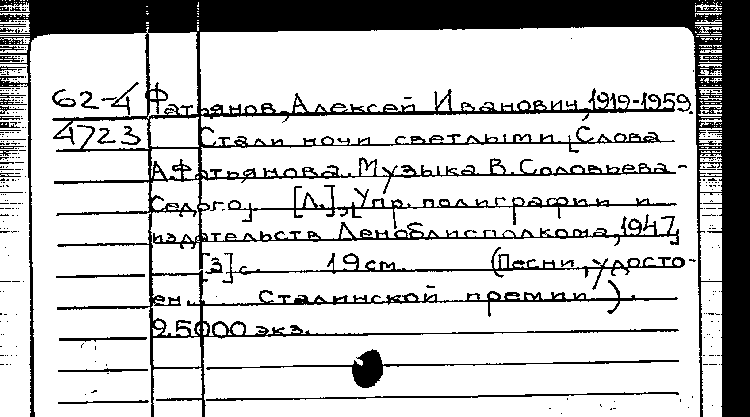 62-4 Фатьянов, Алексей Иванович, 1919-1959.
4723 Стали ночи светлыми. [Слова
А. Фатьянова. Музыка В. Соловьева-
Седого]. [Л.], [Упр. полиграфии и
издательств Леноблисполкома, 1947]
[3] с. 19 см. (Песни, удосто-
ен. Сталинской премии).
25000 экз.